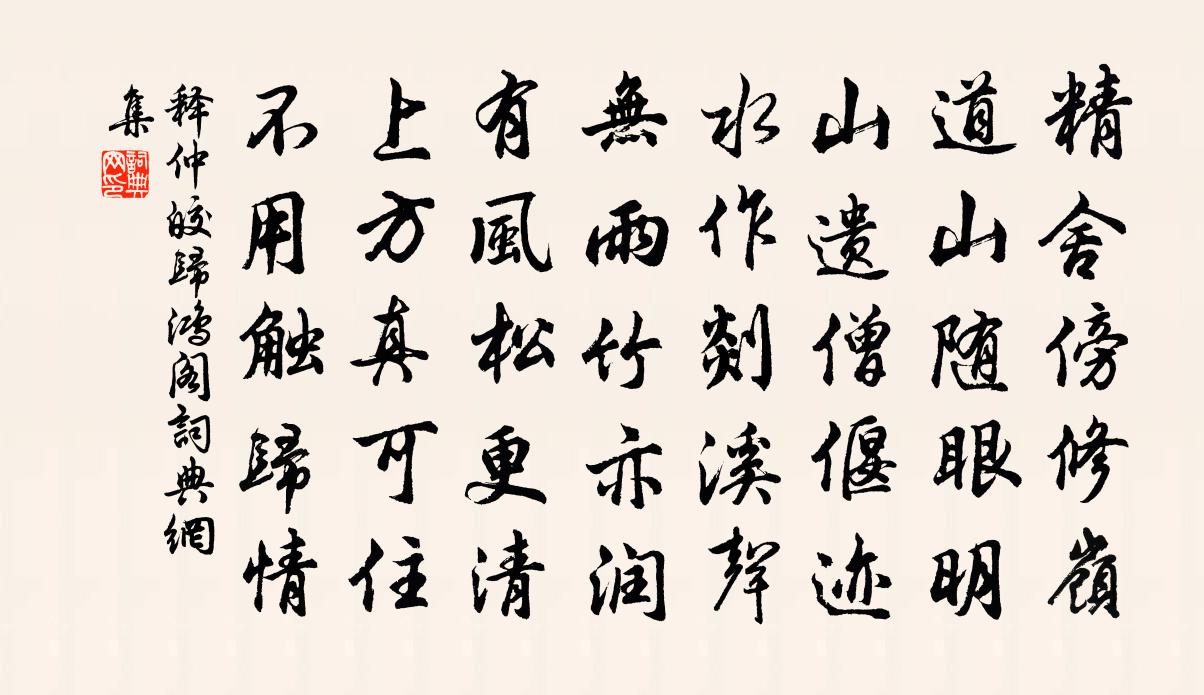 精舍傍修嶺
道山随眼明
山遗僧偃迹
水作剡溪聲
無雨竹亦润
有風松更清
上方真可住
不用触歸情
释仲皎歸鴻阁詞典網
集
詞典網印